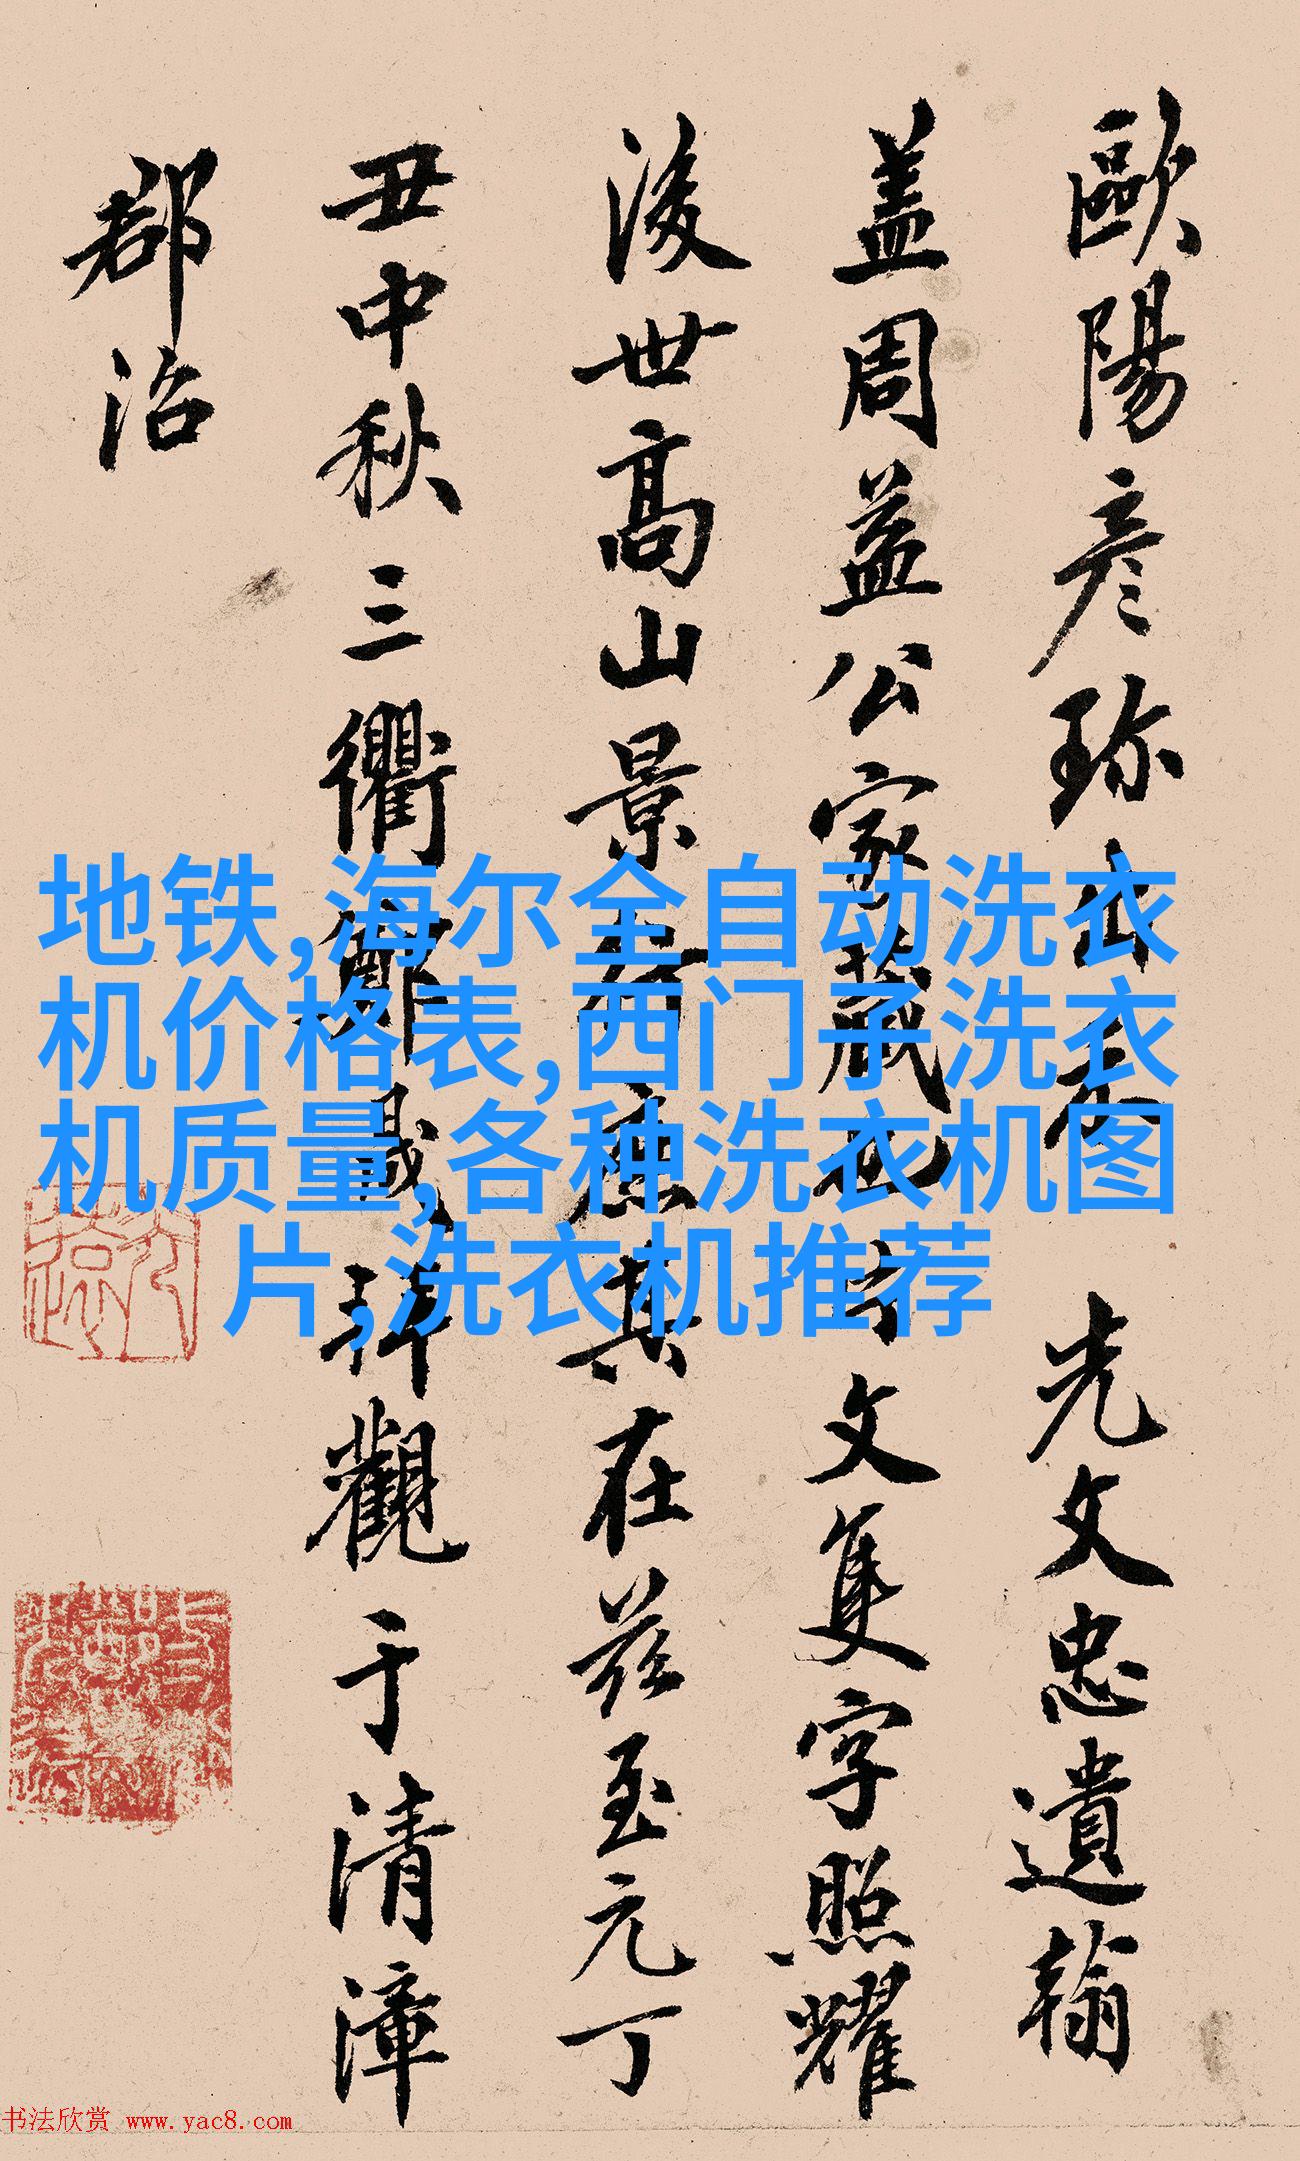 歐陽彦珍出示 光文忠遺翰
盖周益公家藏也片文隻字照耀
後世髙山景行庶其在兹至元丁
丑中秋三衢鄭晟拜觀于清漳
郡治
地铁,海尔全自动洗衣
机价格表,西门子洗衣
机质量,各种洗衣机图
片,洗衣机推荐
书法欣赏 www.yac8.com